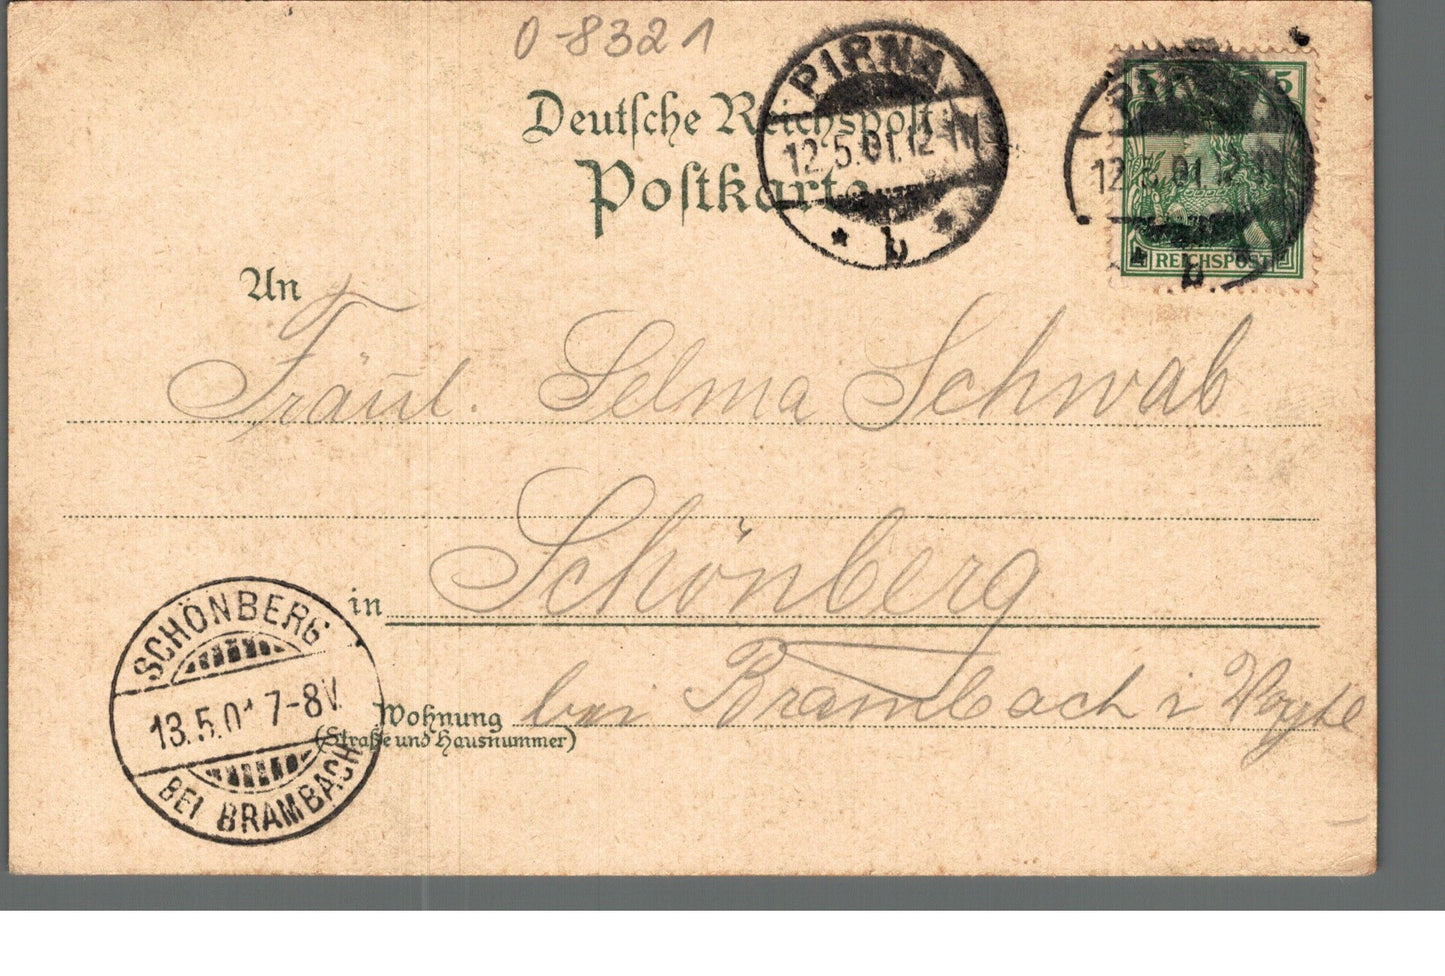 0-8321
Deutsche Reichspost
Postkarte
PIRNA
12.5.01.12-1N
* b *
5 5
PIRNA
12.5.01.12-1N
* b
REICHSPOST
An
Fräul. Selma Schwab
in Schönberg
Wohnung bei Brambach i Vogtl
(Straße und Hausnummer)
SCHÖNBERG
13.5.01 7-8V.
BEI BRAMBACH